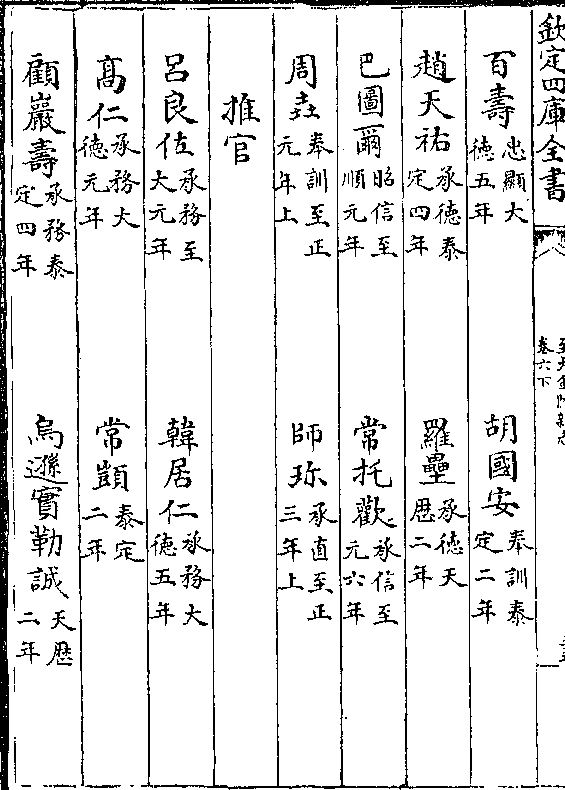 欽定四庫全書
卷六下
百壽忠顯大德五年　胡國安奉訓泰定二年
趙天祐承德泰定四年　羅壘承德天厯二年
巴圖爾昭信至順元年　常托歡承信至元六年
周垚奉訓至正元年上　師珎承直至正三年上
推官
呂良佐承務至大元年　韓居仁承務大德五年
髙仁承務大德元年　常顗泰定二年
顧巖壽承務泰定四年　烏遜實勒誠天厯二年